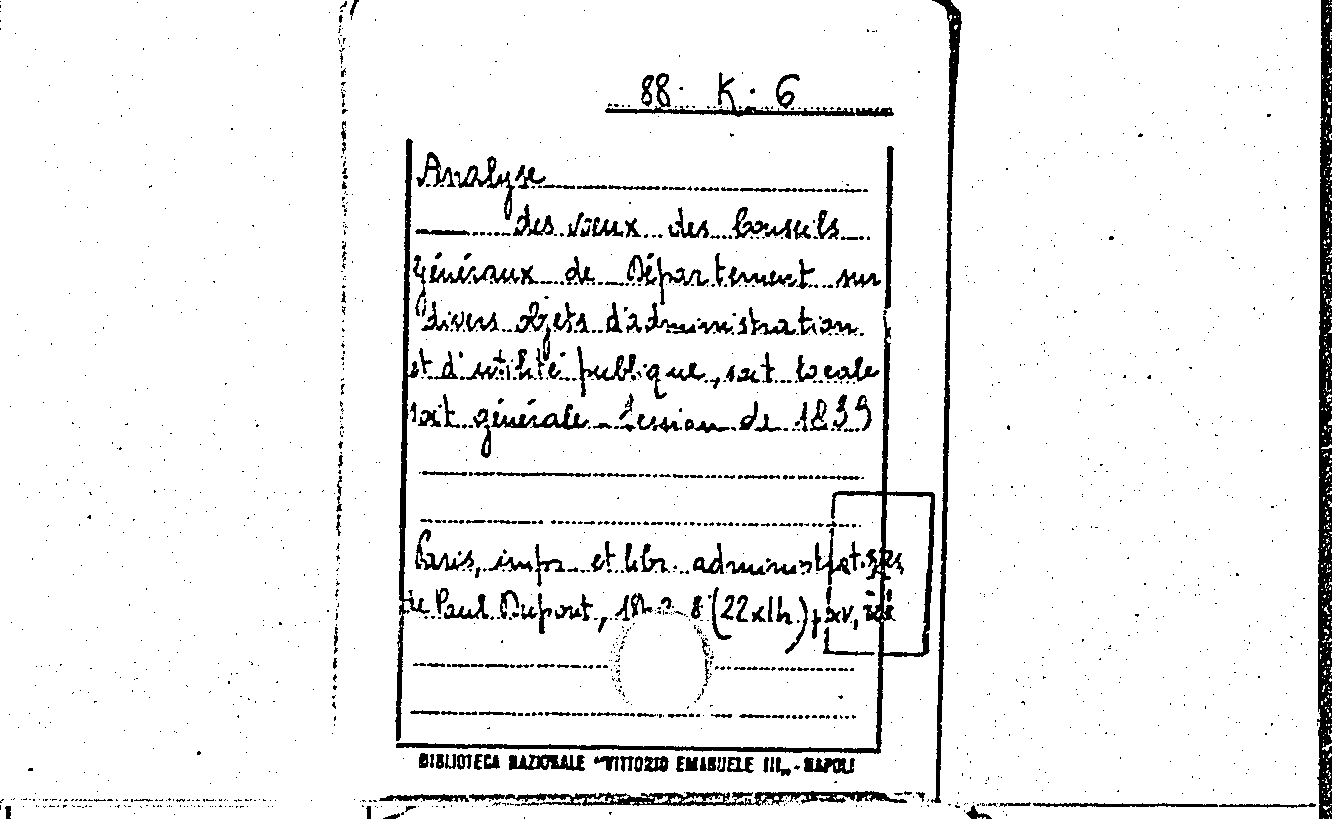 88. K. 6
Analyse
des voeux des Conseils
généraux de Département sur
divers objets d'administration
et d'utilité publique, soit locale
soit générale - Session de 1839
Paris, impr. et libr. administrat.
de Paul Dupont, 8° (22x14), p. xv,
BIBLIOTECA NAZIONALE "VITTORIO EMANUELE III„ - NAPOLI